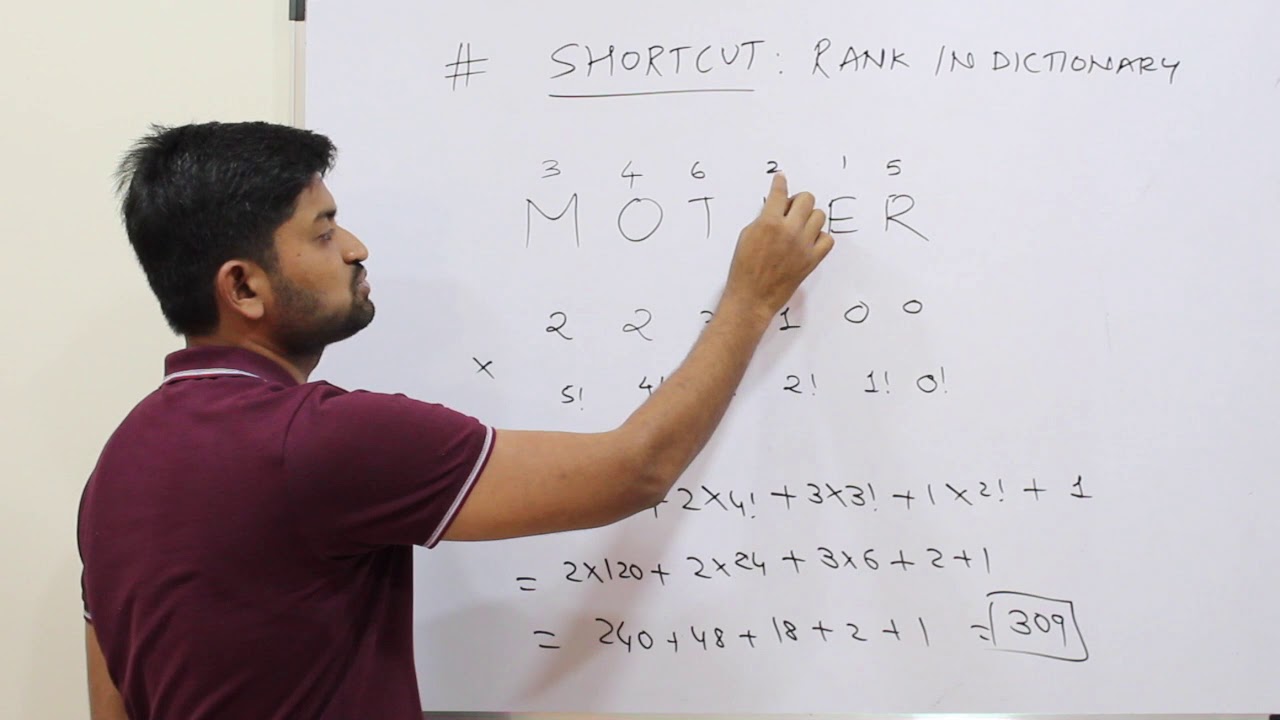 # SHORTCUT: RANK IN DICTIONARY
3 4 6 2 1 5
M O T E R
2 2 1 0 0
× 5! 4! 2! 1! 0!
+ 2×4! + 3×3! + 1×2! + 1
= 2×120 + 2×24 + 3×6 + 2 + 1
= 240 + 48 + 18 + 2 + 1 = 309